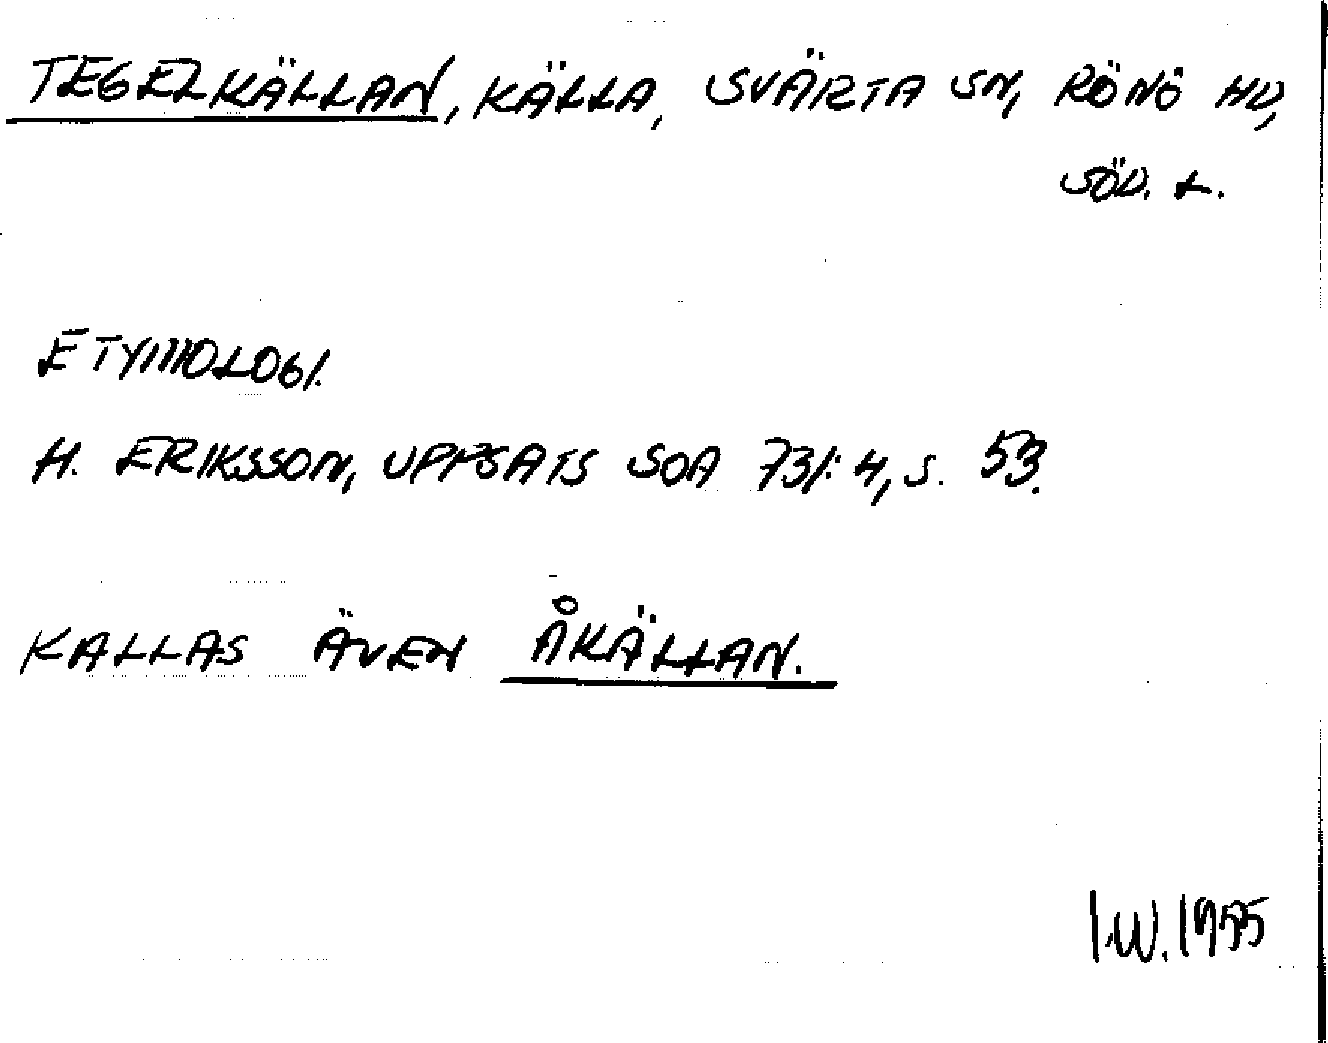 TEGELKÄLLAN, KÄLLA, SVÄRTA SN, RÖNÖ HD,
SÖD. L.
ETYMOLOGI.
H. ERIKSSON, UPPSATS SOA 731:4, S. 53.
KALLAS ÄVEN ÅKÄLLAN.
I.W. 1955